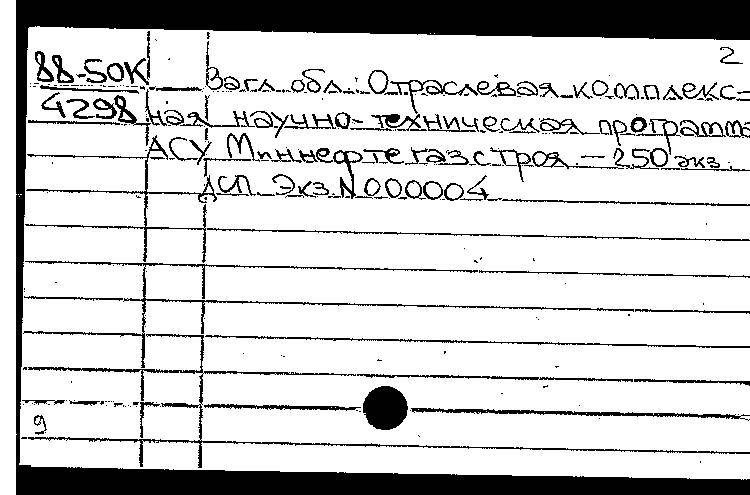 2
88-50К Загл. обл.: Отраслевая комплекс-
4298 ная научно-техническая программа
АСУ Миннефтегазстроя. – 250 экз.
ДСП. Экз. N 000004
9